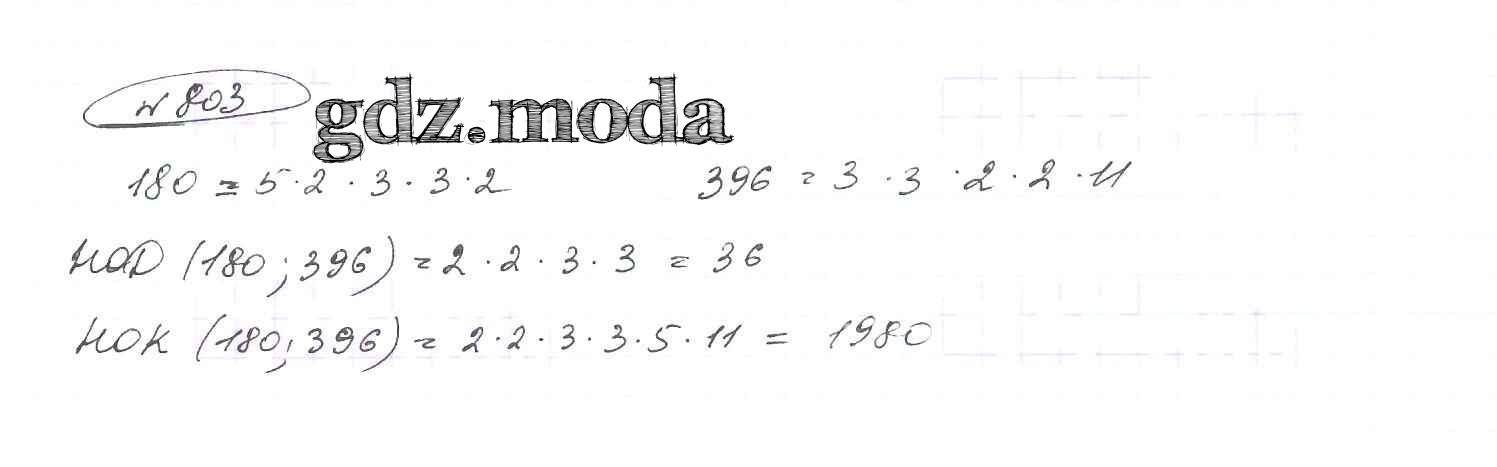 № 803
gdz.moda
180 = 5 · 2 · 3 · 3 · 2
396 = 3 · 3 · 2 · 2 · 11
НОД (180; 396) = 2 · 2 · 3 · 3 = 36
НОК (180; 396) = 2 · 2 · 3 · 3 · 5 · 11 = 1980